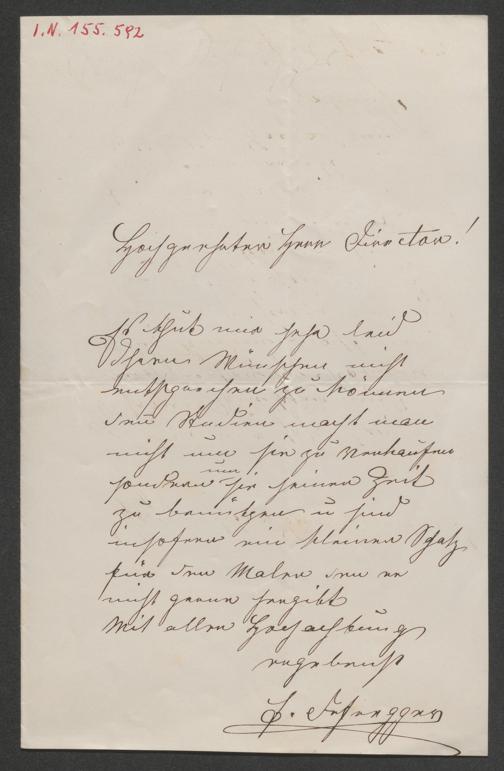 I.N. 155.592
Hochgeehrter Herr Director!
Es thut mir sehr leid
Ihren Wünschen nicht
entsprechen zu können
den Studien macht man
nicht um sie zu verkaufen
sondern um sie seiner Zeit
zu benützen u sind
insofern ein kleiner Schatz
für den Maler den er
nicht gerne hergibt
Mit aller Hochachtung
ergebenst
F. Defregger